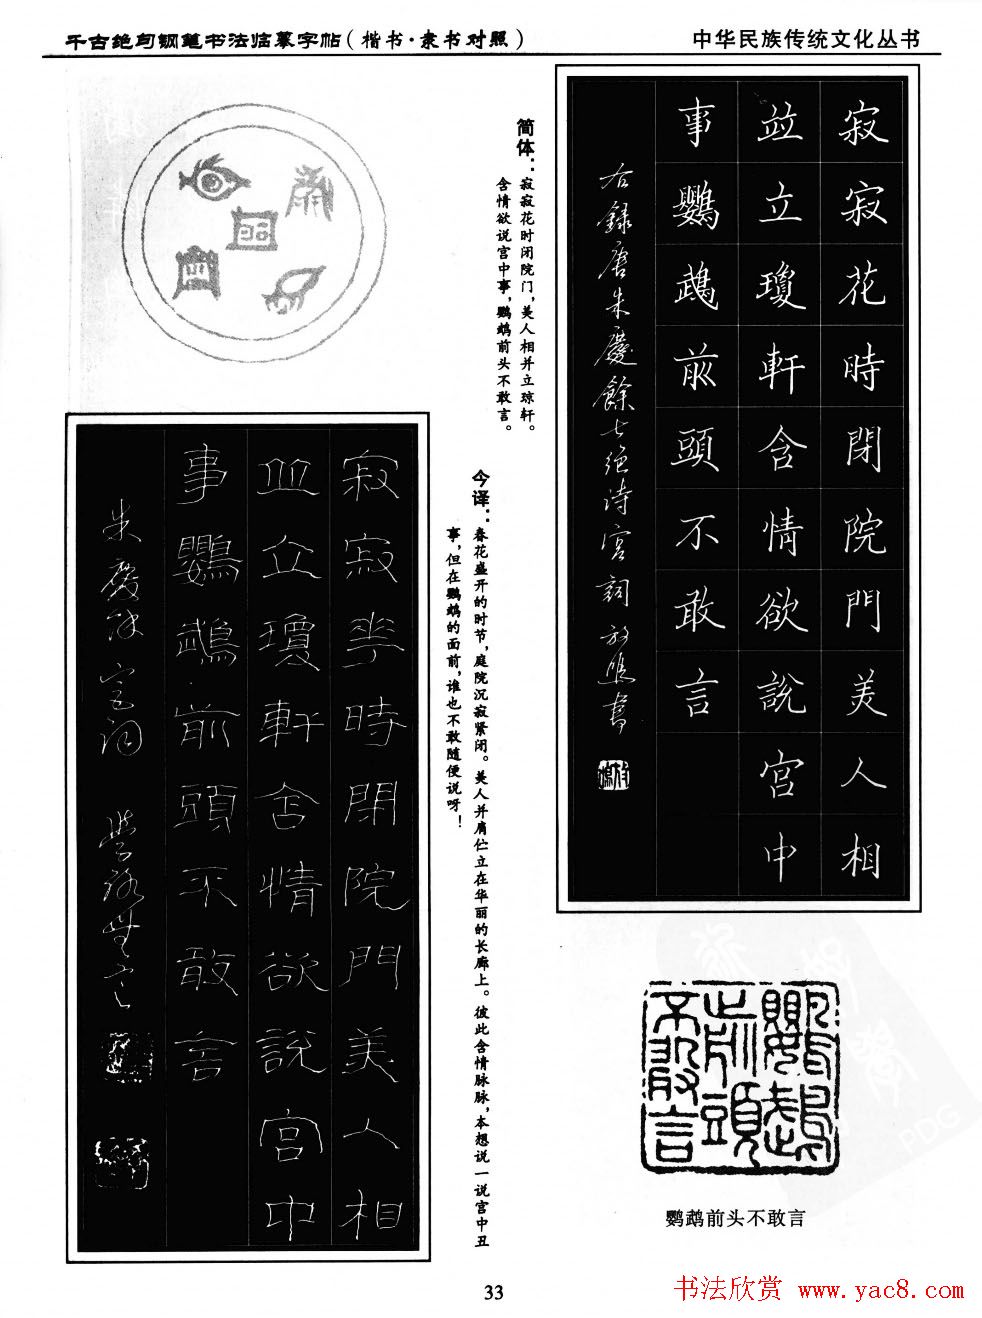 千古绝句钢笔书法临摹字帖(楷书·隶书对照)
中华民族传统文化丛书
寂寂花時閉院門美人相
並立瓊軒含情欲說宮中
事鸚鵡前頭不敢言
右録唐朱慶餘七绝诗宮詞
简体：寂寂花时闭院门，美人相并立琼轩。
含情欲说宫中事，鹦鹉前头不敢言。
今译：春花盛开的时节，庭院沉寂紧闭。美人并肩伫立在华丽的长廊上。彼此含情脉脉，本想说一说宫中丑
事，但在鹦鹉的面前，谁也不敢随便说呀！
寂寂花時閉院門美人相
並立瓊軒含情欲說宮中
事鸚鵡前頭不敢言
朱慶餘宮词
鸚鵡
前頭
不敢言
鹦鹉前头不敢言
33
书法欣赏 www.yac8.com
PDG